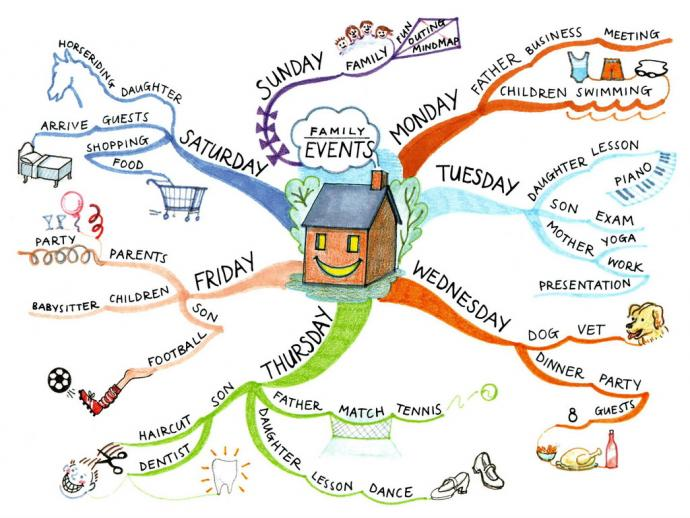 FAMILY
EVENTS
MONDAY
FATHER BUSINESS MEETING
CHILDREN SWIMMING
TUESDAY
DAUGHTER LESSON
PIANO
SON EXAM
MOTHER YOGA
WORK
PRESENTATION
WEDNESDAY
DOG VET
DINNER PARTY
8 GUESTS
THURSDAY
FATHER MATCH TENNIS
DAUGHTER LESSON DANCE
SON
HAIRCUT
DENTIST
FRIDAY
PARENTS
PARTY
CHILDREN
BABYSITTER
SON
FOOTBALL
SATURDAY
DAUGHTER
HORSERIDING
GUESTS
ARRIVE
SHOPPING
FOOD
SUNDAY
FAMILY
FUN
OUTING
MINDMAP